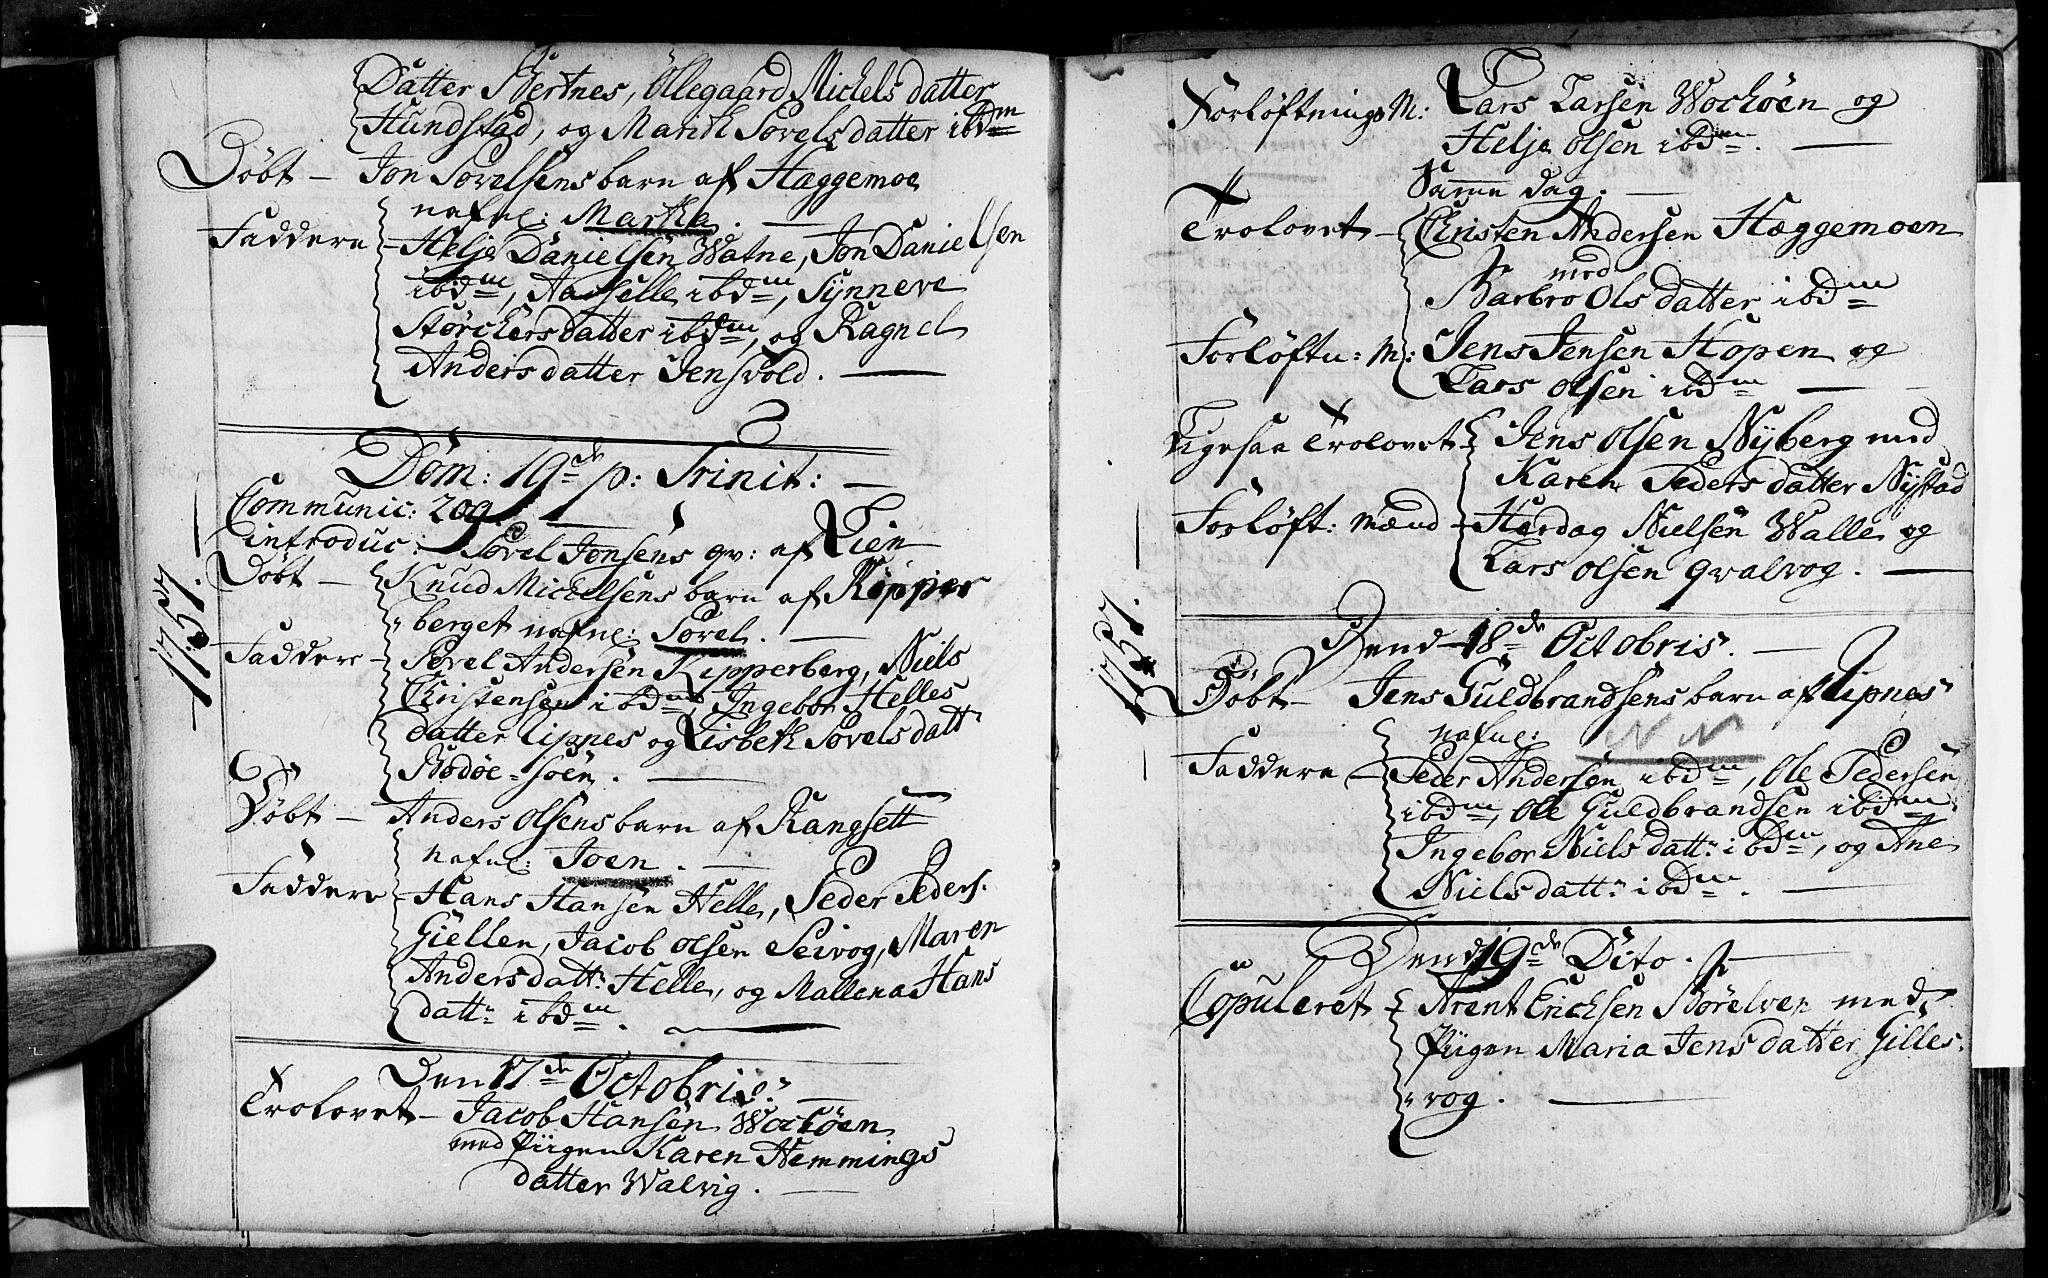 Datter Bertnes, Ollegaard Michels datter
Hundstad, og Marith Sovels datter ibdm
Döbt — Jon Sovelsens barn af Hæggemoe
nafnl: Martha. —
Faddere — Helje Danielsen Watne, Jon Danielsen
ibidm, Aasselle ibdm, Synneve
Störchersdatter ibdm, og Ragnel
Andersdatter Jensvold. —
Dom: 19de p: Trinit: —
Communic: 209. —
introduc: Sovel Jonsens qv: af Lien
Döbt — Knud Michelsens barn af Kipper
berget nafnl: Sovel. —
Faddere — Sovel Andersen Kipperberg, Niels
Christensen ibdm, Ingebor Helles
datter Lipnes og Lisbeth Sovels datt
Bodöe-söen. —
Döbt — Anders Olsens barn af Rangsett
nafnl: Joen. —
Faddere — Hans Hansen Helle, Peder Peders.
Giellen, Jacob Olsen Seivog, Maren
Anders datt: Helle, og Mallena Hans
datt: ibdm. —
1757.
Den 17de Octobris. —
Trolovet — Jacob Hansen Wochöen
med Piigen Karen Hemmings
datter Walvig. —
Forlöftnings M: Lars Larsen Wochöen og
Helje Olsen ibdm. —
Samme dag. —
Trolovet — Christen Andersen Hæggemoen
med
Barbro Ols datter ibidm
Forlöftn: M: Jens Jensen Hopen og
Lars Olsen ibdm —
Ligesaa Trolovet Jens Olsen Nyberg med
Karen Peders datter Nystad
Forlöft: mænd — Hardag Nielsen Walle og
Lars Olsen qvalvog. —
1757.
Dend 18de Octobris. —
Döbt — Jens Guldbrandsens barn af Lipnes
nafnl: N N
Faddere — Peder Andersen ibdm, Ole Pedersen
ibdm, Ole Guldbrandsen ibdm.
Ingebor Niels datt: ibdm, og Ane
Niels datt: ibdm. —
Dend 19de Dito. —
Copuleret — Arent Erichsen Störelven med
Piigen Maria Jens datter Gilles-
vog. —